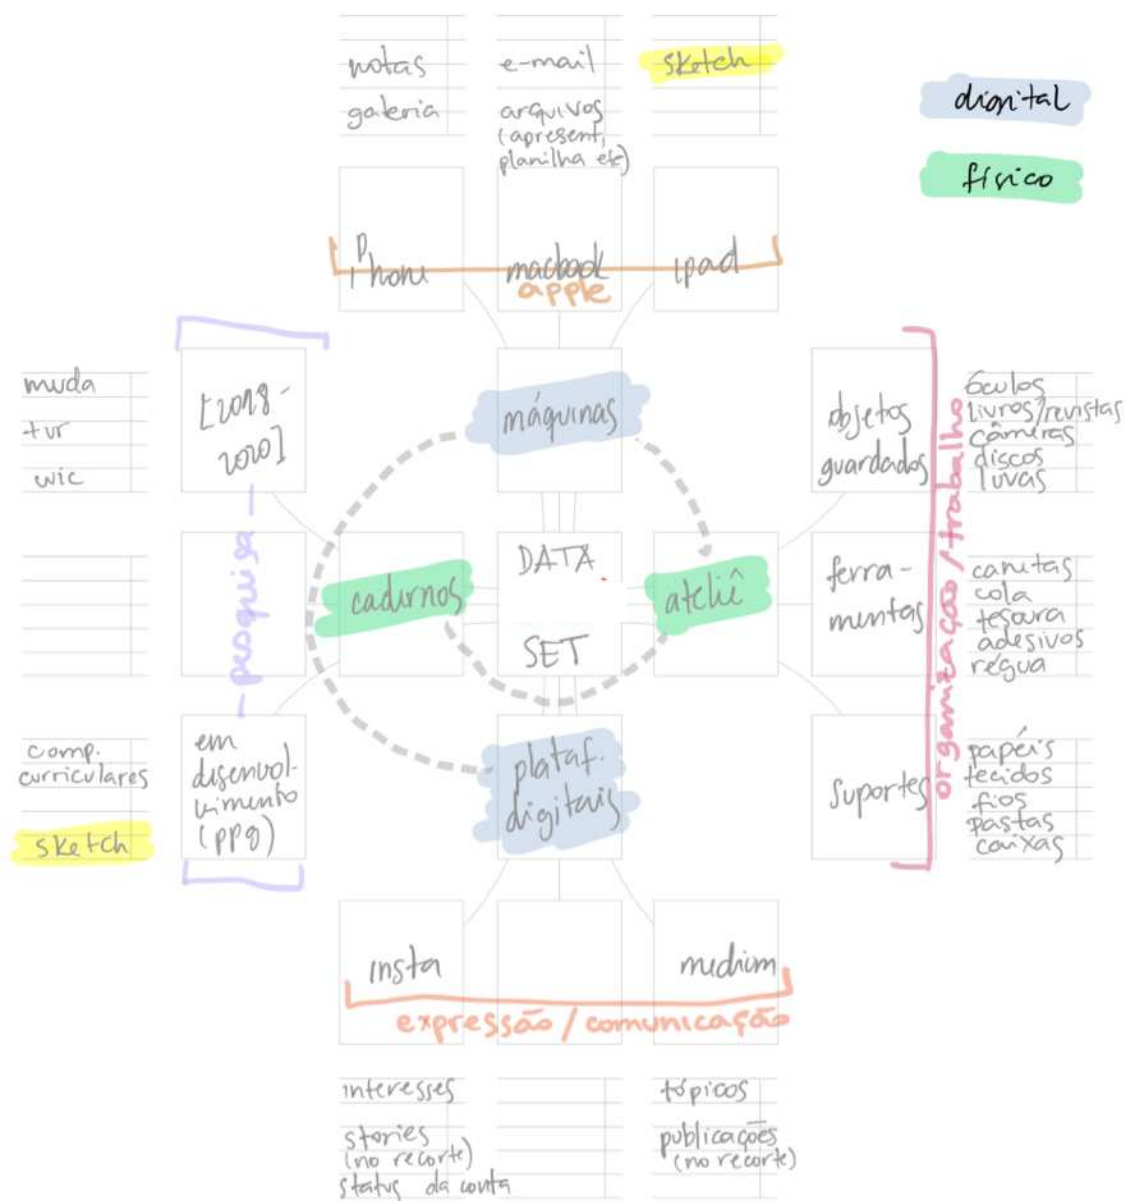 notas
galeria
e-mail
arquivos
(apresent,
planilha etc)
sketch
digital
físico
iPhone
macbook
ipad
apple
muda
tvr
wic
[2018-
2020]
máquinas
objetos
guardados
óculos
livros/revistas
câmeras
discos
luvas
pesquisa
cadernos
DATA
SET
ateliê
ferra-
mentas
canetas
cola
tesoura
adesivos
régua
organização/trabalho
comp.
curriculares
sketch
em
desenvol-
vimento
(ppg)
plataf.
digitais
suportes
papéis
tecidos
fios
pastas
caixas
insta
medium
expressão/comunicação
interesses
stories
(no recorte)
status da conta
tópicos
publicações
(no recorte)